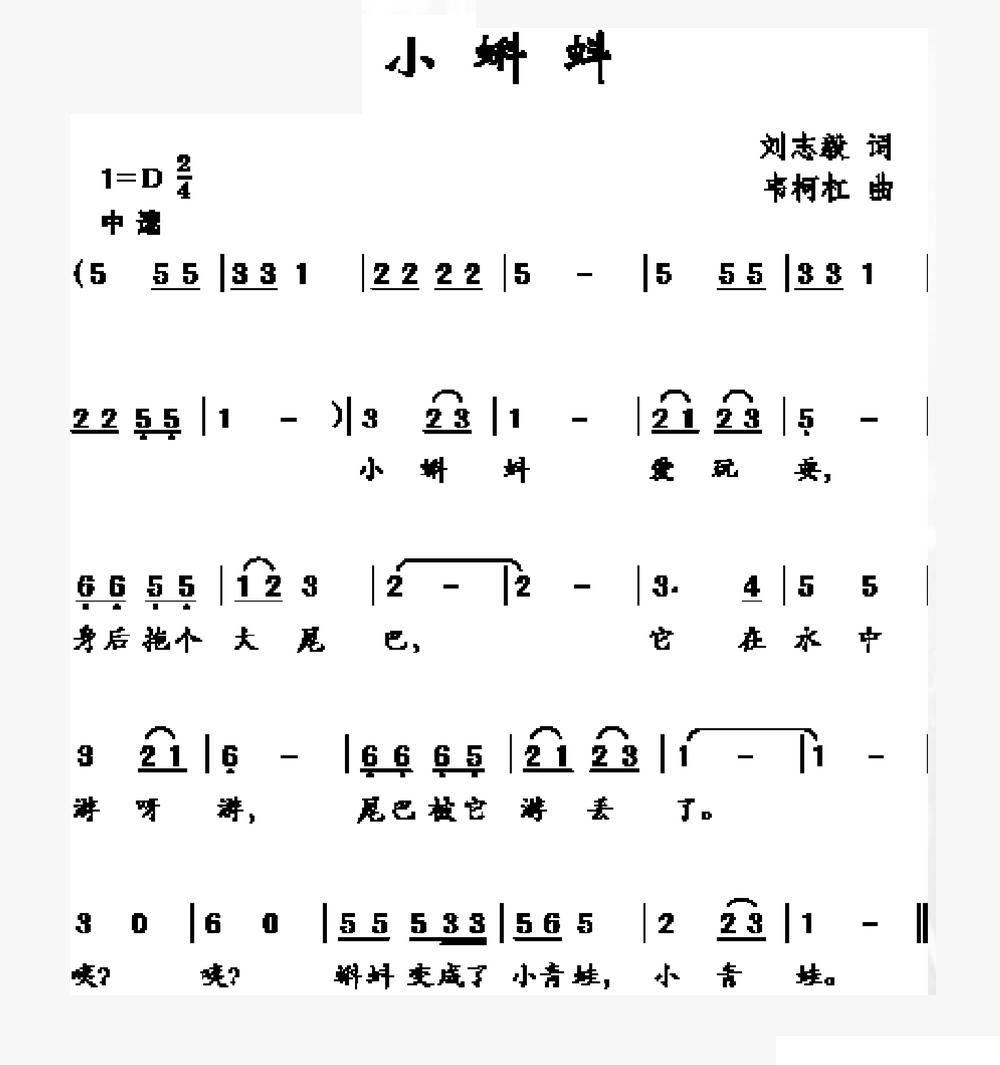 小蝌蚪
刘志毅 词
1=D 2/4
韦柯杠 曲
中速
(5 55 |33 1 |22 22 |5 - |5 55 |33 1 |
22 55 |1 - )|3 23 |1 - |21 23 |5 - |
小 蝌 蚪 爱 玩 耍,
66 55 |12 3 |2 - |2 - |3. 4 |5 5 |
身后 拖个 大 尾 巴, 它 在 水 中
3 21 |6 - |66 65 |21 23 |1 - |1 - |
游 呀 游, 尾巴 被它 游 丢 了。
3 0 |6 0 |55 533 |56 5 |2 23 |1 - ‖
咦? 咦? 蝌蚪 变成了 小青蛙, 小 青 蛙。